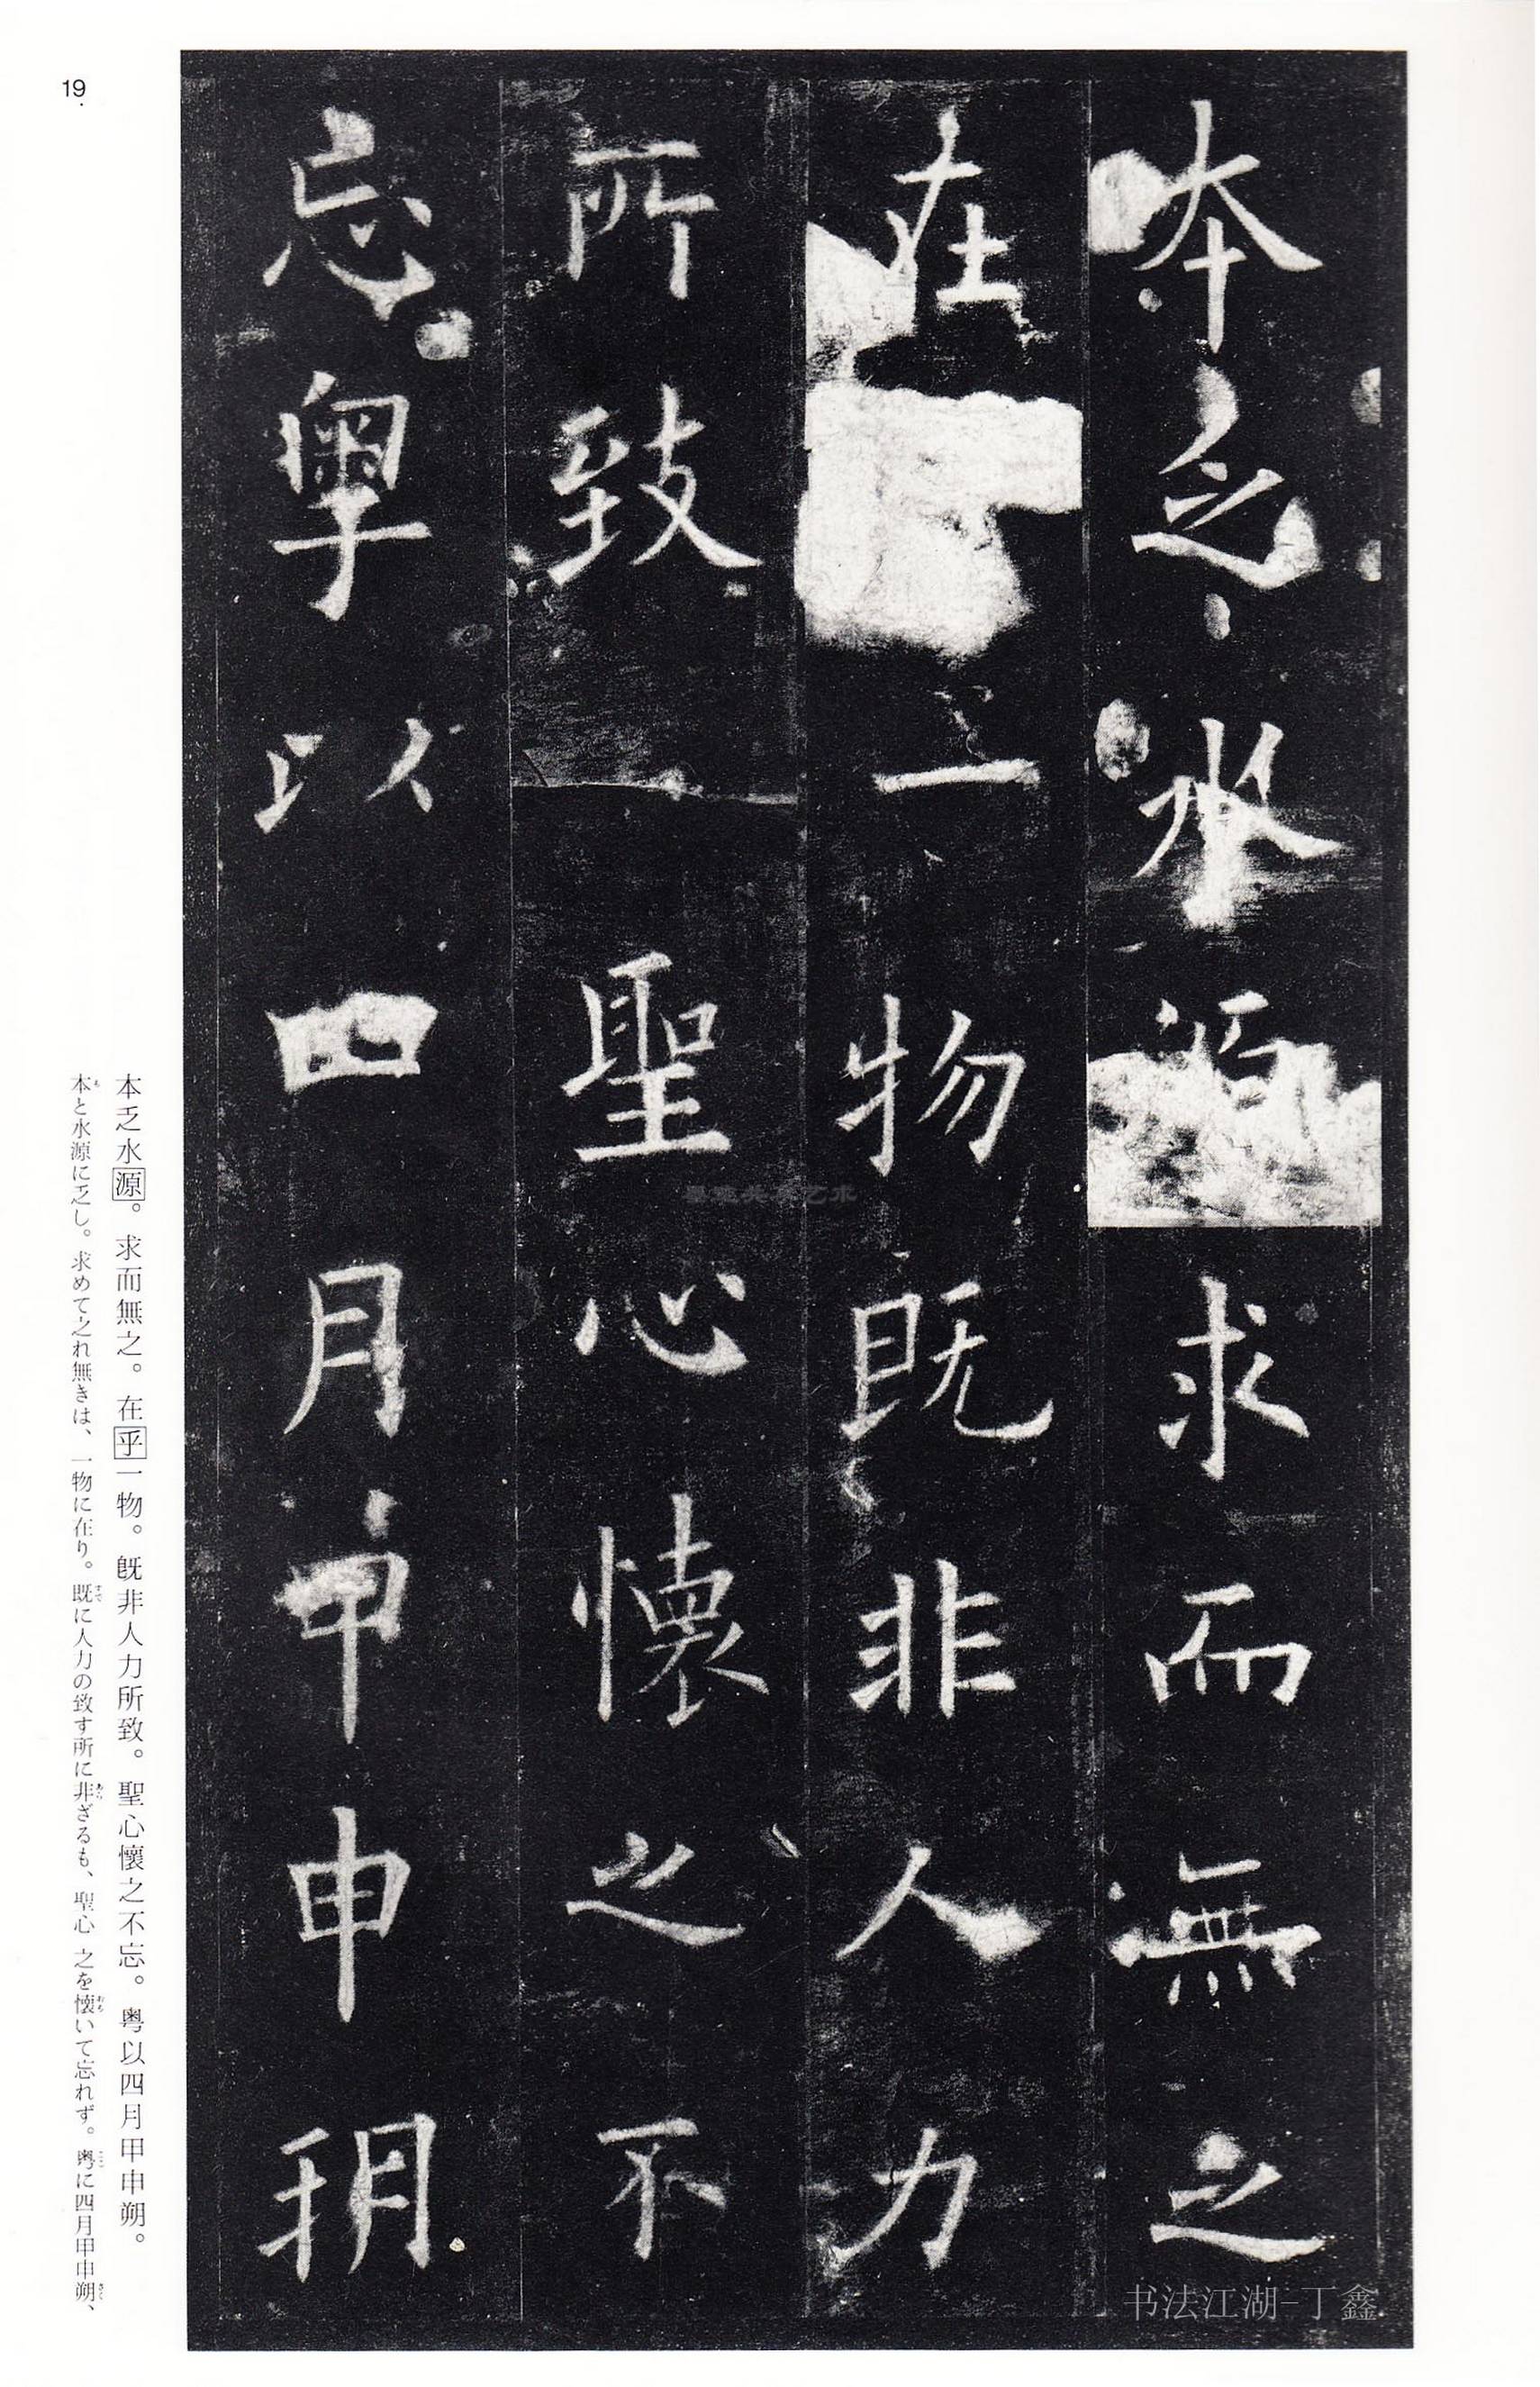 本乏水
求而無之
在
一物既非人力
所致
聖心懷之不
忘粤以四月甲申朔
本乏水源。求而無之。在乎一物。既非人力所致。聖心懷之不忘。粤以四月甲申朔。
本と水源に乏し。求めて之れ無きは、一物に在り。既に人力の致す所に非ざるも、聖心 之を懐いて忘れず。粤に四月甲申朔、
19
书法江湖-丁鑫